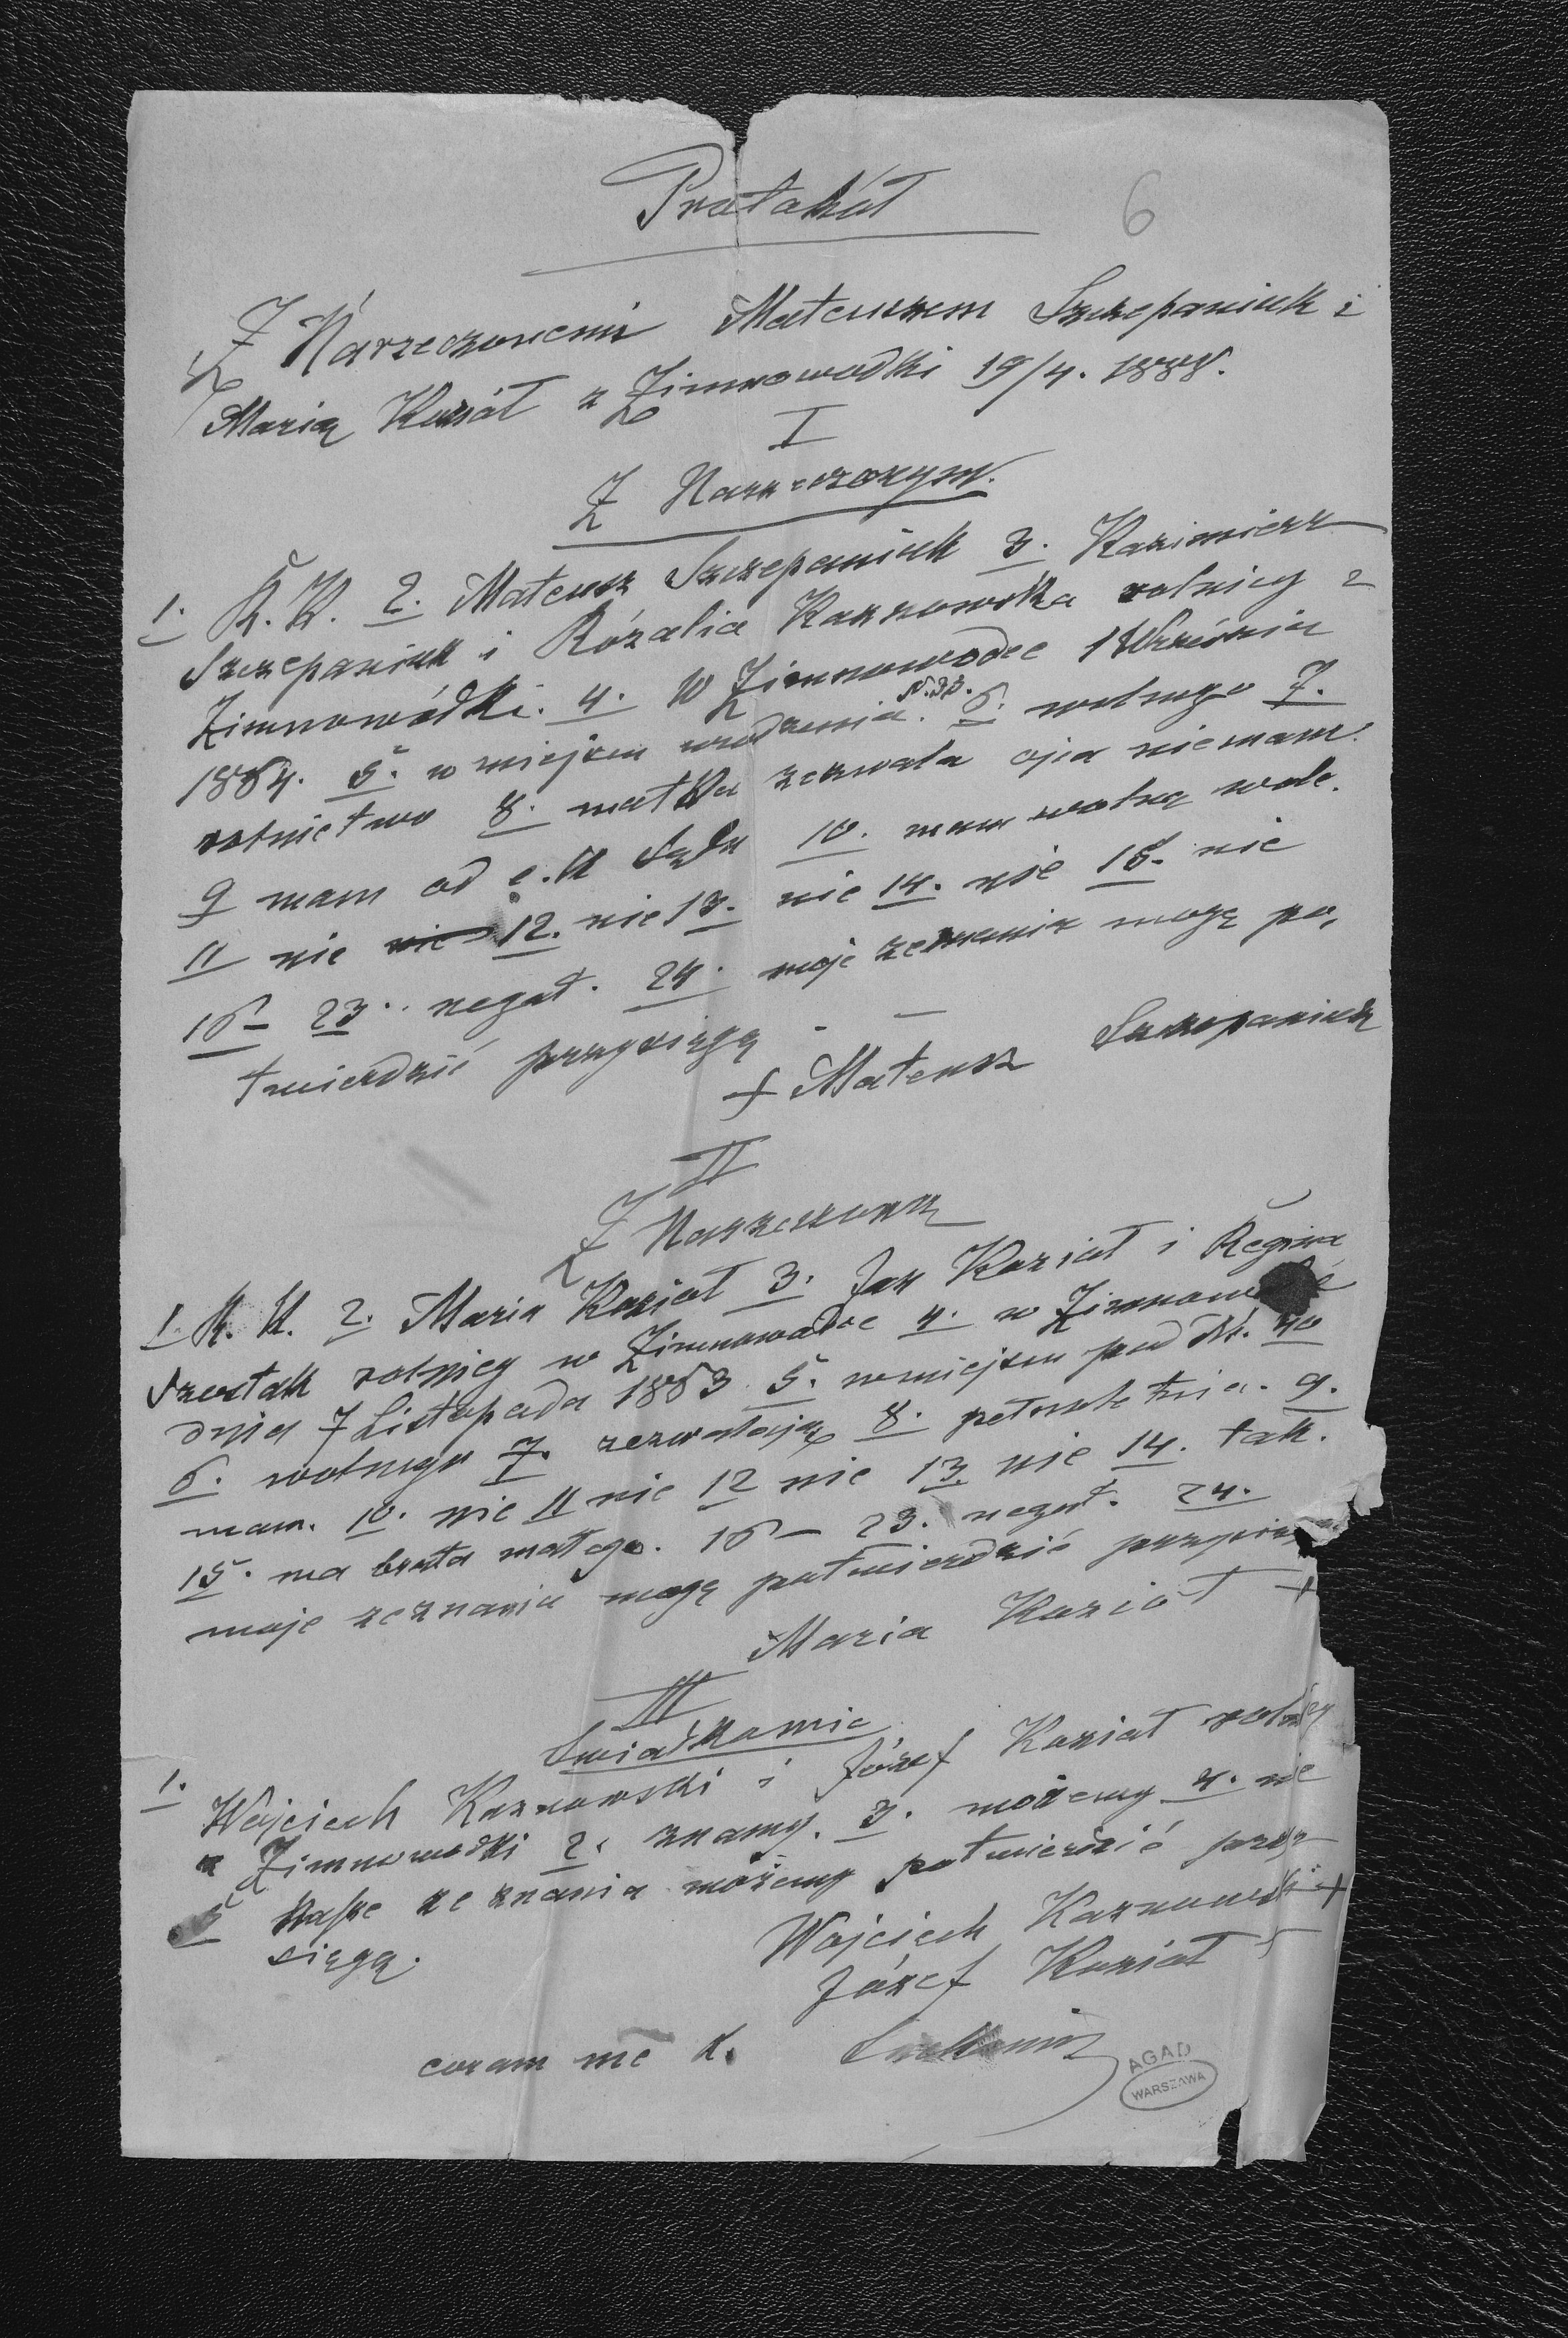 Protokół
6
Z Narzeczonemi Mateuszem Szczepaniuk i
Marią Kozioł z Zimnowodki 19/4. 1888.
I
Z Narzeczonym.
1. R. K. 2. Mateusz Szczepaniuk 3. Kazimierz
Szczepaniuk i Rózalia Karnowska rolnicy z
Zimnowódki. 4. W Zimnowodce 1 Września
1864. 5. w miejscu urodzenia. N. 33. 6. wolnego 7.
rolnictwo 8. matka zezwala ojca niemam.
9 mam od c. k Sądu 10. mam wolną wole.
11 nie nie 12. nie 13. nie 14. nie 15. nie
16 - 23. negat. 24. moje zeznania mogę po,
twierdzić przysięgą - -
+ Mateusz Szczepaniuk
II
Z Narzeczoną
1. R. K. 2. Maria Kozioł 3. Jan Kozioł i Regina
Szostak rolnicy w Zimnowodce 4. w
dnia 7 Listopada 1863 5. w miejscu pod Nr. 40
6. wolnego 7. zezwalają 8. pełnoletnia. 9.
mam. 10. nie 11 nie 12 nie 13. nie 14. tak.
15. ma brata małego. 16 - 23. negat. 24.
moje zeznania mogę potwierdzić
Maria Kozioł +
III
Swiadkamie
1. Wojciech Karnowski i Józef Kozioł rolnicy
z Zimnowodki 2. znamy. 3. możemy 4. nie
5 Nasze zeznania możemy potwierdzić przy
sięgą.
Wojciech Karnowski +
Józef Kozioł +
coram me X.
AGAD
WARSZAWA